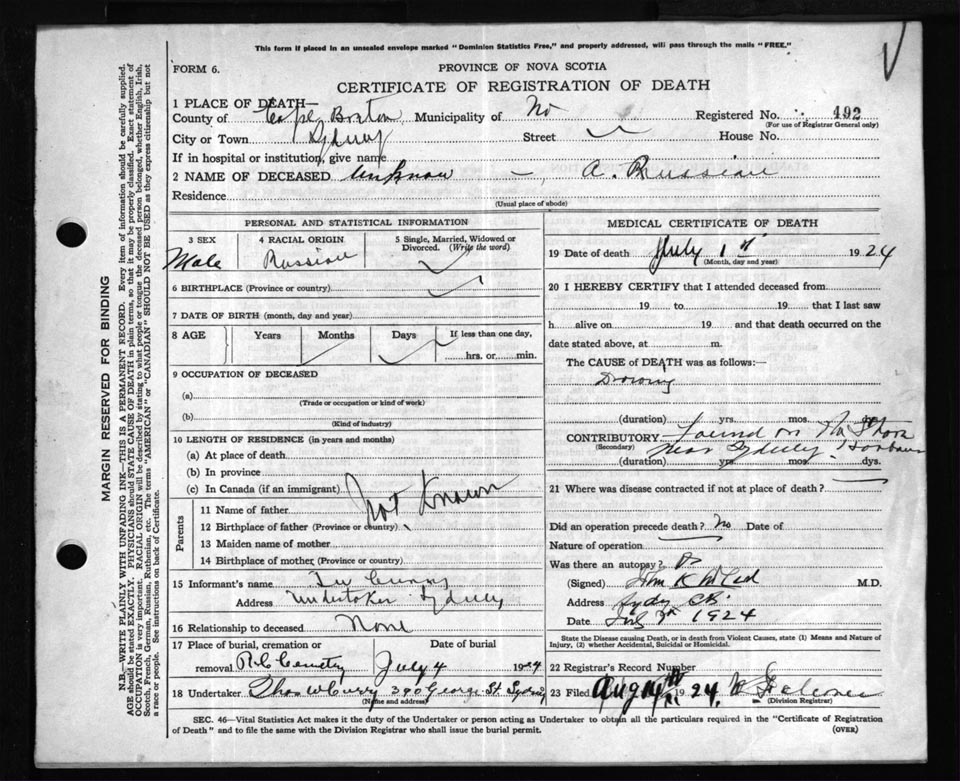 This form if placed in an unsealed envelope marked "Dominion Statistics Free," and properly addressed, will pass through the mails "FREE."
FORM 6.
PROVINCE OF NOVA SCOTIA
CERTIFICATE OF REGISTRATION OF DEATH
1 PLACE OF DEATH—
County of Cape Breton Municipality of No Registered No. 492
(For use of Registrar General only)
City or Town Sydney Street House No.
If in hospital or institution, give name
2 NAME OF DECEASED Unknown —, A. Russian
Residence
(Usual place of abode)
PERSONAL AND STATISTICAL INFORMATION
3 SEX 4 RACIAL ORIGIN 5 Single, Married, Widowed or Divorced. (Write the word)
Male Russian
6 BIRTHPLACE (Province or country)
7 DATE OF BIRTH (month, day and year)
8 AGE Years Months Days If less than one day,
hrs. or min.
9 OCCUPATION OF DECEASED
(a)
(Trade or occupation or kind of work)
(b)
(Kind of industry)
10 LENGTH OF RESIDENCE (in years and months)
(a) At place of death
(b) In province
(c) In Canada (if an immigrant)
Not Known
Parents
11 Name of father
12 Birthplace of father (Province or country)
13 Maiden name of mother
14 Birthplace of mother (Province or country)
15 Informant's name
Address Undertaker Sydney
16 Relationship to deceased None
17 Place of burial, cremation or removal R C Cemetry Date of burial July 4 1924
18 Undertaker Thos W Curry 390 George St. Sydney
(Name and address)
MEDICAL CERTIFICATE OF DEATH
19 Date of death July 1st 1924
(Month, day and year)
20 I HEREBY CERTIFY that I attended deceased from
19 to 19 that I last saw
h alive on 19 and that death occurred on the
date stated above, at m.
The CAUSE of DEATH was as follows:—
(duration) yrs. mos. ds.
CONTRIBUTORY Found on Shore
(Secondary) near Sydney Harbour
(duration) yrs. mos. dys.
21 Where was disease contracted if not at place of death?
Did an operation precede death? No Date of
Nature of operation
Was there an autopsy?
(Signed) John K McLeod M.D.
Address Sydney CB
Date July 1924
State the Disease causing Death, or in death from Violent Causes, state (1) Means and Nature of Injury, (2) whether Accidental, Suicidal or Homicidal.
22 Registrar's Record Number
23 Filed Aug 1924
(Division Registrar)
SEC. 46—Vital Statistics Act makes it the duty of the Undertaker or person acting as Undertaker to obtain all the particulars required in the "Certificate of Registration
of Death" and to file the same with the Division Registrar who shall issue the burial permit.
(OVER)
MARGIN RESERVED FOR BINDING
N.B.—WRITE PLAINLY WITH UNFADING INK—THIS IS A PERMANENT RECORD. Every item of information should be carefully supplied.
AGE should be stated EXACTLY. PHYSICIANS should STATE CAUSE OF DEATH in plain terms, so that it may be properly classified. Exact statement of
OCCUPATION is very important. RACIAL ORIGIN will be described by stating to what people or tongue the deceased person belonged, whether English, Irish,
Scotch, French, German, Russian, Ruthenian, etc. The terms "AMERICAN" or "CANADIAN" SHOULD NOT BE USED as they express citizenship but not
a race or people. See instructions on back of Certificate.